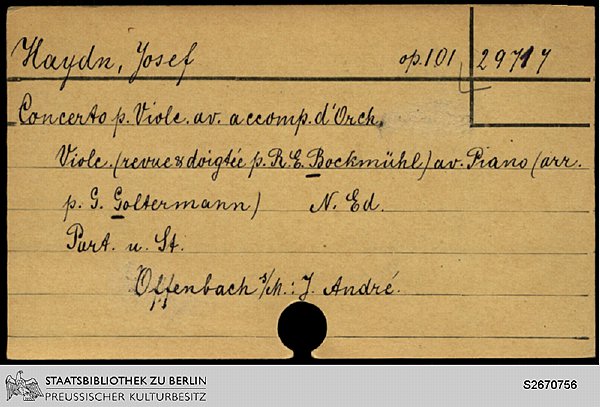 Haydn, Josef op. 101 29717
Concerto p. Violc. av. accomp. d'Orch.
Violc. (revue & doigtée p. R. E. Bockmühl) av. Piano (arr.
p. G. Goltermann) N. Ed.
Part. u. St.
Offenbach a/M.: J. André.
STAATSBIBLIOTHEK ZU BERLIN
PREUSSISCHER KULTURBESITZ
S2670756